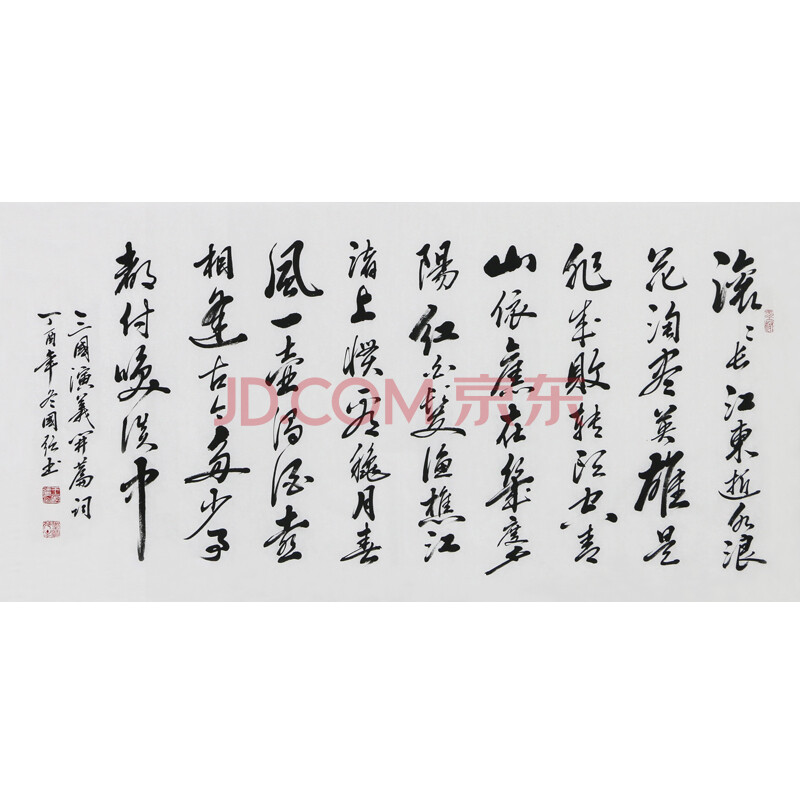 滚〻长江東逝水浪
花淘尽英雄是
非成敗转头空青
山依舊在幾度夕
陽红白髮渔樵江
渚上惯看穐月春
風一壶浊酒喜
相逢古今多少事
都付咲谈中
三國演義开篇词
丁酉年冬國强书
JD.COM 京东